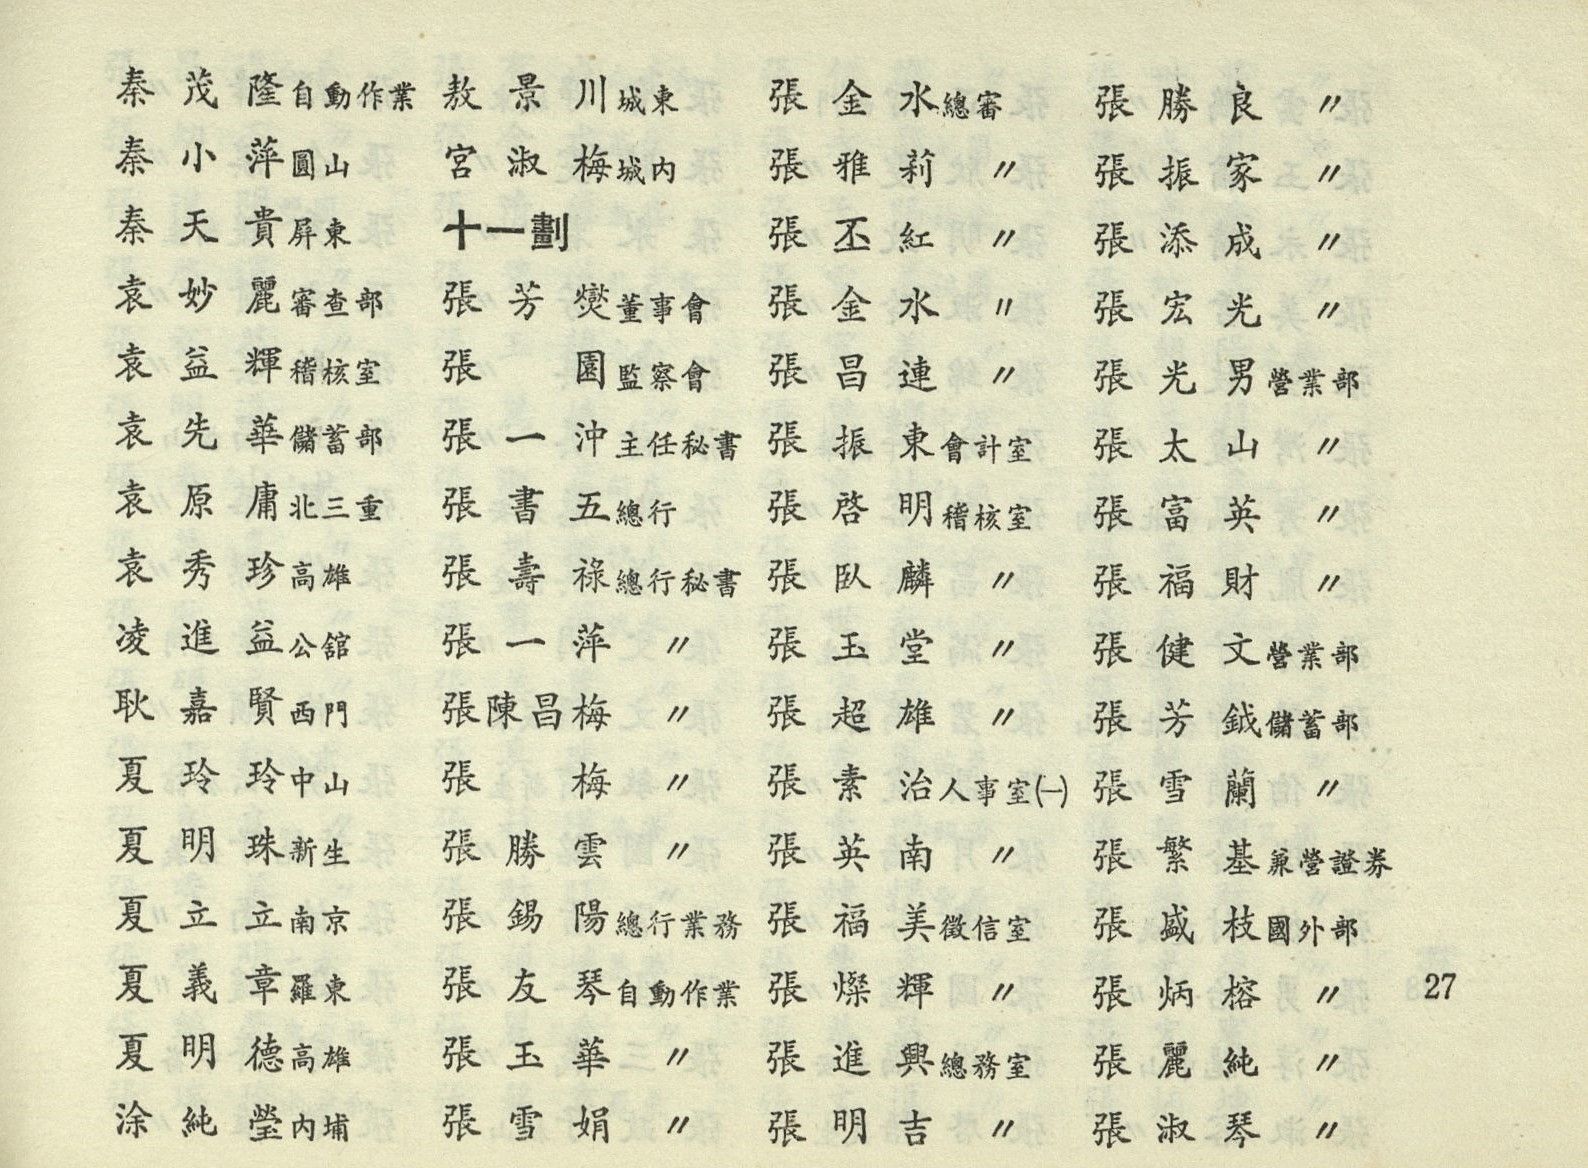 秦茂隆 自動作業
秦小萍 圓山
秦天貴 屏東
袁妙麗 審查部
袁益輝 稽核室
袁先華 儲蓄部
袁原庸 北三重
袁秀珍 高雄
凌進益 公舘
耿嘉賢 西門
夏玲玲 中山
夏明珠 新生
夏立立 南京
夏義章 羅東
夏明德 高雄
涂純瑩 內埔
敖景川 城東
宮淑梅 城內
十一劃
張芳燮 董事會
張園 監察會
張一沖 主任秘書
張書五 總行
張壽祿 總行秘書
張一萍 〃
張陳昌梅 〃
張梅 〃
張勝雲 〃
張錫陽 總行業務
張友琴 自動作業
張玉華 〃
張雪娟 〃
張金水 總審
張雅莉 〃
張丕紅 〃
張金水 〃
張昌連 〃
張振東 會計室
張啓明 稽核室
張臥麟 〃
張玉堂 〃
張超雄 〃
張素治 人事室㈠
張英南 〃
張福美 徵信室
張燦輝 〃
張進興 總務室
張明吉 〃
張勝良 〃
張振家 〃
張添成 〃
張宏光 〃
張光男 營業部
張太山 〃
張富英 〃
張福財 〃
張健文 營業部
張芳鉞 儲蓄部
張雪蘭 〃
張繁基 兼營證券
張盛枝 國外部
張炳榕 〃
張麗純 〃
張淑琴 〃
27